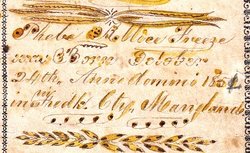 Phebe M. Mcee Freeze
was Born October
24th. Anno domini 18
in Fredk. Cty. Maryland